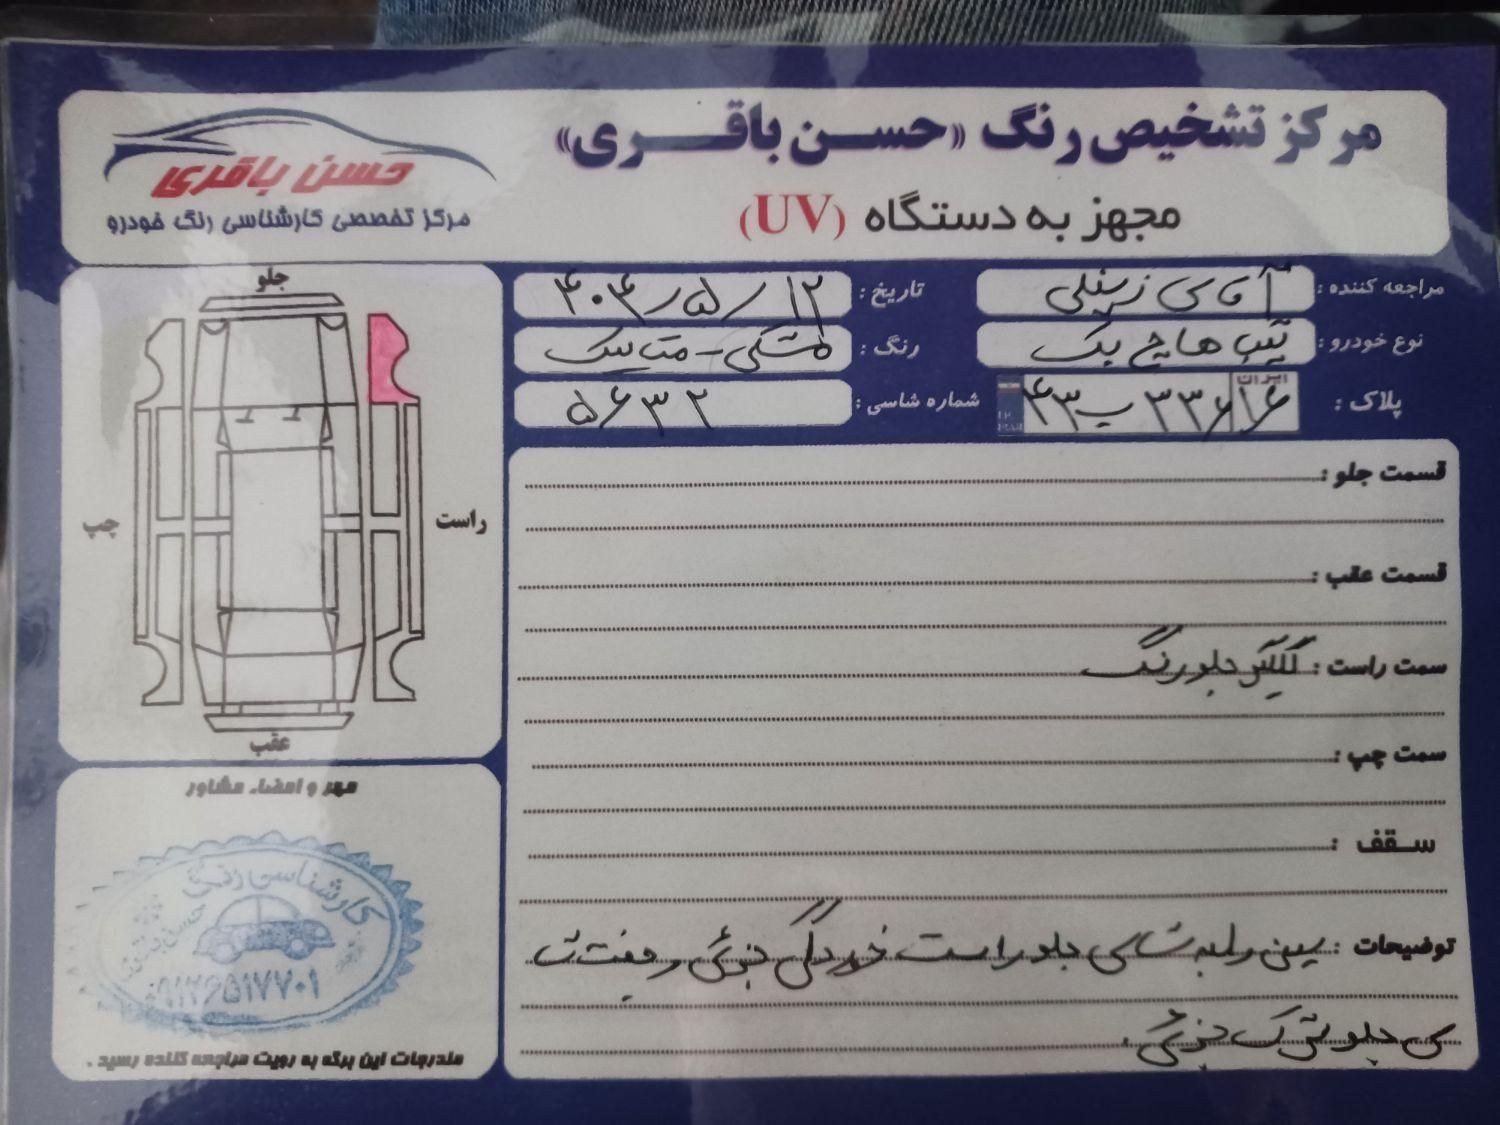 مرکز تشخیص رنگ «حسن باقری»
مجهز به دستگاه (UV)
حسن باقری
مرکز تخصصی کارشناسی رنگ خودرو
مراجعه کننده : آقای زینلی
تاریخ : ۴۰۴/۵/۱۲
نوع خودرو : تیپ هاچ بک
رنگ : مشکی - متالیک
پلاک : ایران ۱۶ ۳۳۶ ب ۴۳
شماره شاسی : ۵۶۳۲
جلو
راست
چپ
عقب
قسمت جلو :
قسمت عقب :
سمت راست : گلگیر جلو رنگ
سمت چپ :
سقف :
توضیحات : سینی و لبه شاسی جلو راست خوردگی جزئی و
ی جلو جزئی.
مهر و امضاء مشاور
کارشناسی رنگ
حسن باقری
۰۹۱۲۶۵۱۷۷۰۱
مندرجات این برگه به رویت مراجعه کننده رسید .